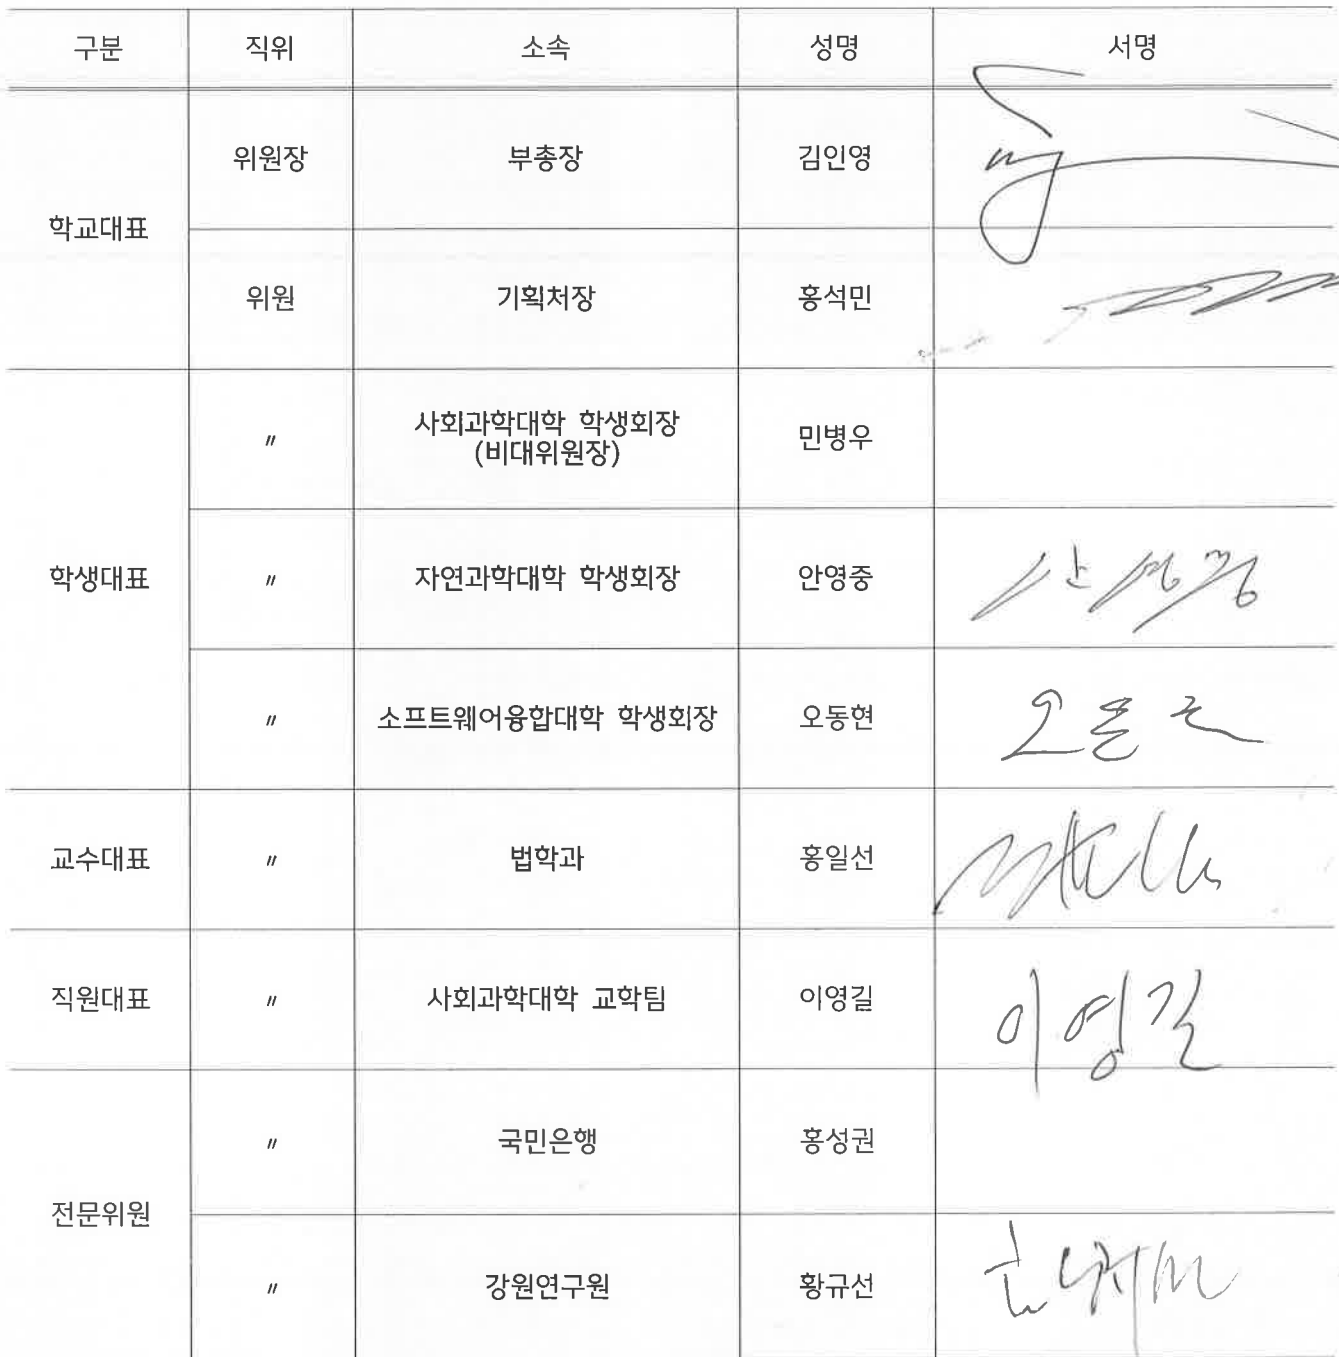 구분 직위 소속 성명 서명
학교대표 위원장 부총장 김인영
위원 기획처장 홍석민
학생대표 〃 사회과학대학 학생회장
(비대위원장) 민병우
〃 자연과학대학 학생회장 안영중
〃 소프트웨어융합대학 학생회장 오동현
교수대표 〃 법학과 홍일선
직원대표 〃 사회과학대학 교학팀 이영길 이영길
전문위원 〃 국민은행 홍성권
〃 강원연구원 황규선